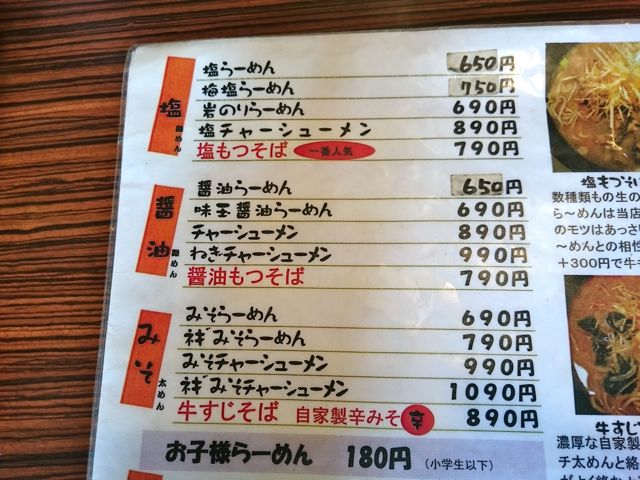 塩 細めん
塩らーめん 650円
梅塩らーめん 750円
岩のりらーめん 690円
塩チャーシューメン 890円
塩もつそば 一番人気 790円
醤油 細めん
醤油らーめん 650円
味玉醤油らーめん 690円
チャーシューメン 890円
ねぎチャーシューメン 990円
醤油もつそば 790円
みそ 太めん
みそらーめん 690円
ネギみそらーめん 790円
みそチャーシューメン 990円
ネギみそチャーシューメン 1090円
牛すじそば 自家製辛みそ 辛 890円
お子様らーめん 180円 (小学生以下)
塩もつそ
数種類もの生の
ら〜めんは当店
のモツはあっさ
〜めんとの相性
+300円で牛モ
牛すじ
濃厚な自家製
チ太めんと絡